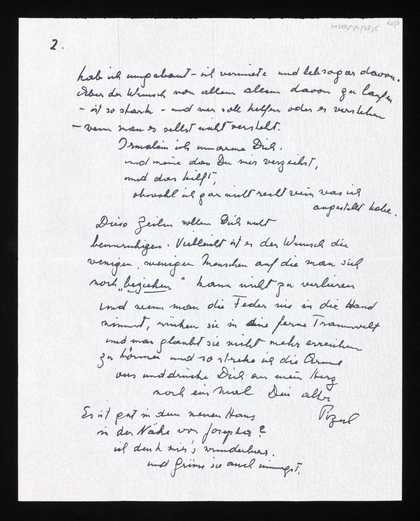 2.
hab ich umgebaut - ich vermiete und leb sogar davon.
Aber der Wunsch von allem allem davon zu laufen
- ist so stark - und wer soll helfen oder es verstehen
- wenn man es selbst nicht versteht.
ich umarme Dich.
und meine dass Du mir verzeihst,
und das hilft,
obwohl ich gar nicht recht weiss was ich
angestellt habe.
Diese Zeilen sollen Dich nicht
beunruhigen. Vielleicht ist es der Wunsch die
wenigen, wenigen Menschen auf die man sich
noch „beziehen“ kann nicht zu verlieren
und wenn man die Feder nie in die Hand
nimmt, rücken sie in eine ferne Traumwelt
und man glaubt sie nicht mehr erreichen
zu können und so strecke ich die Arme
aus und drücke Dich an mein Herz
noch ein mal Dein alter
Es ist gut in dem neuen Haus
in der Nähe von Josepha?
ich denk mir's wunderbar.
und grüsse sie auch innigst.